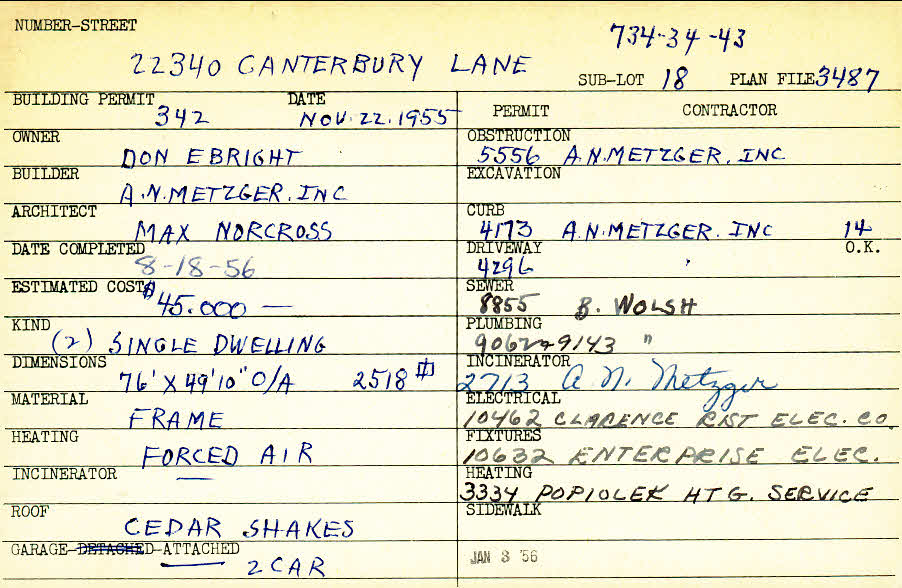 NUMBER-STREET
734-34-43
22340 CANTERBURY LANE
SUB-LOT 18 PLAN FILE 3487
BUILDING PERMIT DATE
342 NOV. 22. 1955
PERMIT CONTRACTOR
OWNER
DON EBRIGHT
OBSTRUCTION
5556 A.N. METZGER. INC
BUILDER
A.N. METZGER. INC
EXCAVATION
ARCHITECT
MAX NORCROSS
CURB
4173 A.N. METZGER. INC 14
DATE COMPLETED
8-18-56
DRIVEWAY O.K.
4296
ESTIMATED COST
$45.000 —
SEWER
8855 B. WOLSH
KIND
(2) SINGLE DWELLING
PLUMBING
9062 & 9143 "
DIMENSIONS
76' X 49'10" O/A 2518 #
INCINERATOR
2713 A. N. Metzger
MATERIAL
FRAME
ELECTRICAL
10462 CLARENCE RIST ELEC. CO.
HEATING
FORCED AIR
FIXTURES
10632 ENTERPRISE ELEC.
INCINERATOR —
HEATING
3334 POPIOLEK HTG. SERVICE
ROOF
CEDAR SHAKES
SIDEWALK
GARAGE-DETACHED-ATTACHED
2 CAR
JAN 3 '56